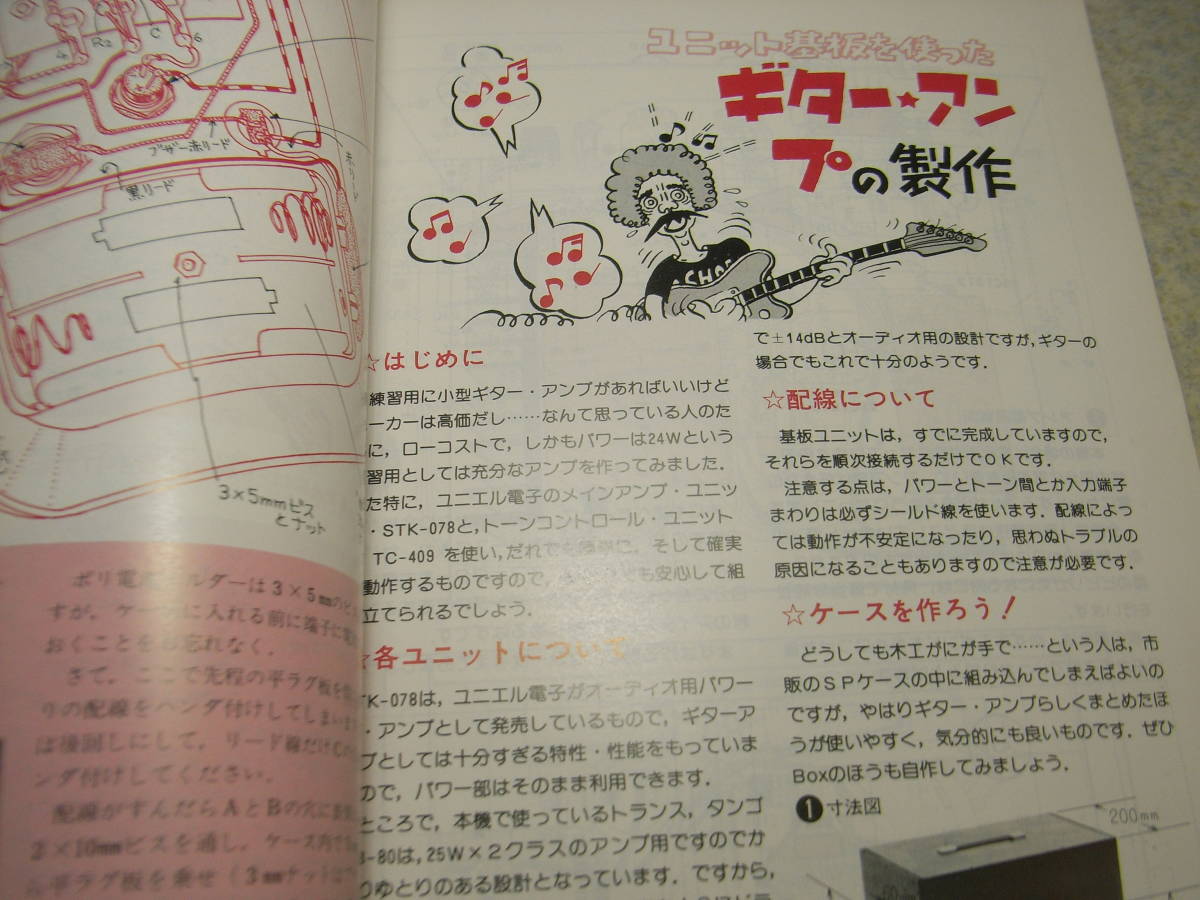 4
R2
C
6
ブザー赤リード
黒リード
赤リード
3×5mmビス
とナット
すが,
おくことを
忘れなく.
さて, ここで先程の平ラグ板を
りの配線をハンダ付けしてしまいま
は後回しにして, リード線だけ
ンダ付けしてください.
配線がすんだらAとBの穴に
×10mmビスを通し, ケース内で
平ラグ板を乗せ (3mmナット
ユニット基板を使った
ギター★アン
プの製作
☆はじめに
練習用に小型ギター・アンプがあればいいけど
ーカーは高価だし……なんて思っている人のた
に, ローコストで, しかもパワーは24Wという
習用としては充分なアンプを作ってみました.
た特に, ユニエル電子のメインアンプ・ユニッ
・STK-078と, トーンコントロール・ユニット
TC-409 を使い, だれでも簡単に, そして確実
動作するものですので,
も安心して組
立てられるでしょう.
☆各ユニットについて
TK-078は, ユニエル電子がオーディオ用パワー
・アンプとして発売しているもので, ギターア
プとしては十分すぎる特性・性能をもっていま
ので, パワー部はそのまま利用できます.
ところで, 本機で使っているトランス, タンゴ
-80は, 25W×2クラスのアンプ用ですのでか
りゆとりのある設計となっています. ですから,
で±14dBとオーディオ用の設計ですが, ギターの
場合でもこれで十分のようです.
☆配線について
基板ユニットは, すでに完成していますので,
それらを順次接続するだけでOKです.
注意する点は, パワーとトーン間とか入力端子
まわりは必ずシールド線を使います. 配線によっ
ては動作が不安定になったり, 思わぬトラブルの
原因になることもありますので注意が必要です.
☆ケースを作ろう!
どうしても木工がにが手で……という人は, 市
販のSPケースの中に組み込んでしまえばよいの
ですが, やはりギター・アンプらしくまとめたほ
うが使いやすく, 気分的にも良いものです. ぜひ
Boxのほうも自作してみましょう.
❶寸法図
200mm
60